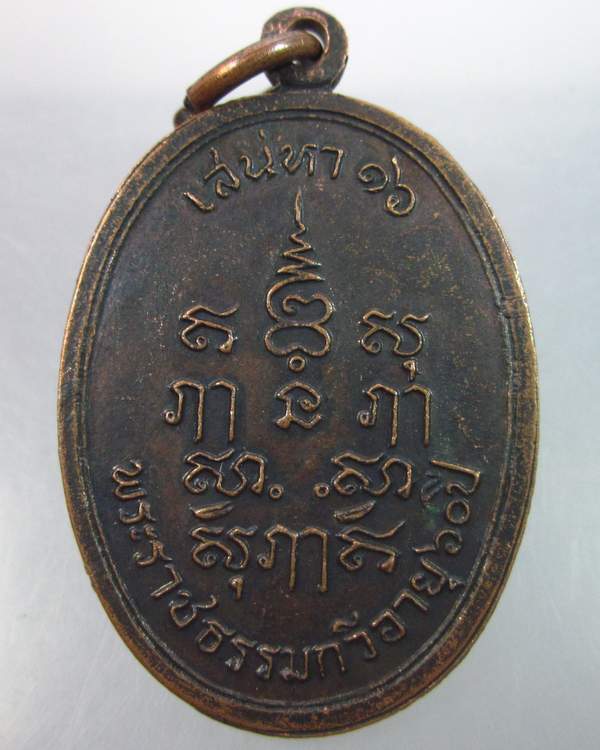 เสน่หา ๑๖
ต สุ
ภา ภา
สา สา
สุภาสี
พระราชธรรมกวีอายุ ๖๐ปี